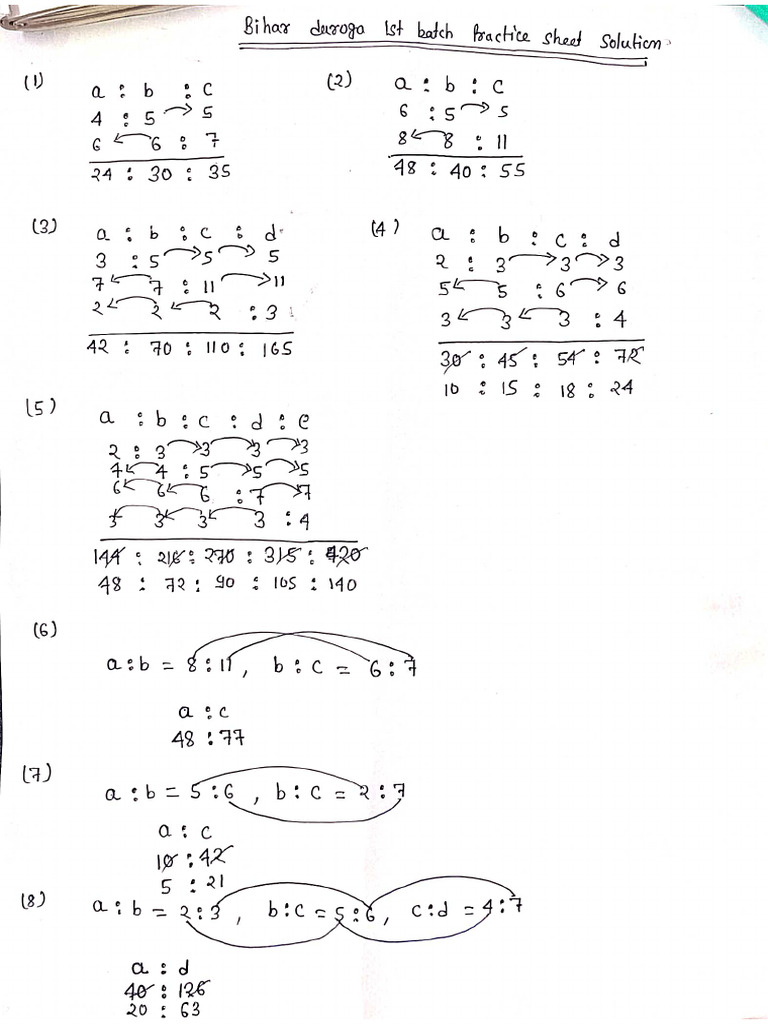 Bihar daroga 1st batch Practice Sheet Solution
(1)
a : b : c
4 : 5 → 5
6 ← 6 : 7
24 : 30 : 35
(2)
a : b : c
6 : 5 → 5
8 ← 8 : 11
48 : 40 : 55
(3)
a : b : c : d
3 : 5 → 5 → 5
7 ← 7 : 11 → 11
2 ← 2 ← 2 : 3
42 : 70 : 110 : 165
(4)
a : b : c : d
2 : 3 → 3 → 3
5 ← 5 : 6 → 6
3 ← 3 ← 3 : 4
30 : 45 : 54 : 72
10 : 15 : 18 : 24
(5)
a : b : c : d : e
2 : 3 → 3 → 3 → 3
4 ← 4 : 5 → 5 → 5
6 ← 6 ← 6 : 7 → 7
3 ← 3 ← 3 ← 3 : 4
144 : 216 : 270 : 315 : 420
48 : 72 : 90 : 105 : 140
(6)
a : b = 8 : 11, b : c = 6 : 7
a : c
48 : 77
(7)
a : b = 5 : 6, b : c = 2 : 7
a : c
10 : 42
5 : 21
(8)
a : b = 2 : 3, b : c = 5 : 6, c : d = 4 : 7
a : d
40 : 126
20 : 63